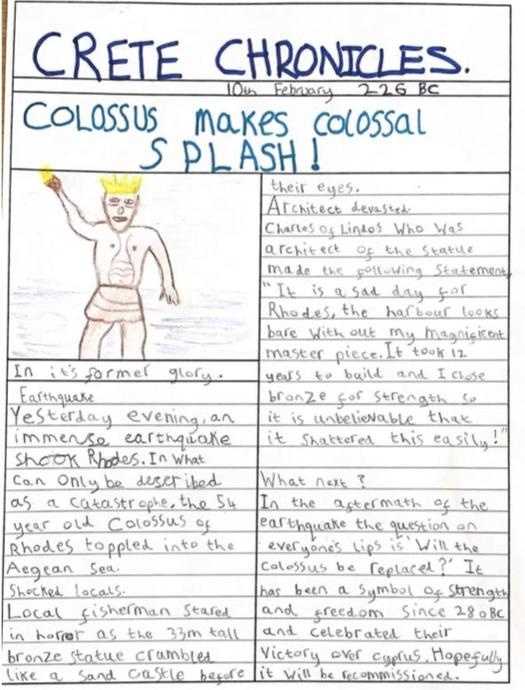 CRETE CHRONICLES.
10th February 226 BC
COLOSSUS makes colossal
SPLASH!
In it's former glory.
Earthquake
Yesterday evening, an
immense earthquake
shook Rhodes. In what
can only be described
as a catastrophe, the 54
year old Colossus of
Rhodes toppled into the
Aegean sea.
Shocked locals.
Local fisherman stared
in horror as the 33m tall
bronze statue crumbled
like a sand castle before
their eyes.
Architect devasted
Charles of Lindos Who was
architect of the statue
made the following statement,
"It is a sad day for
Rhodes, the harbour looks
bare with out my magnicicent
master piece. It took 12
years to build and I chose
bronze for strength so
it is unbelievable that
it shattered this easily!"
What next?
In the aftermath of the
earthquake the question on
everyone's lips is 'Will the
colossus be replaced?' It
has been a symbol of strength
and freedom since 280BC
and celebrated their
Victory over cyprus. Hopefully
it will be recommissioned.